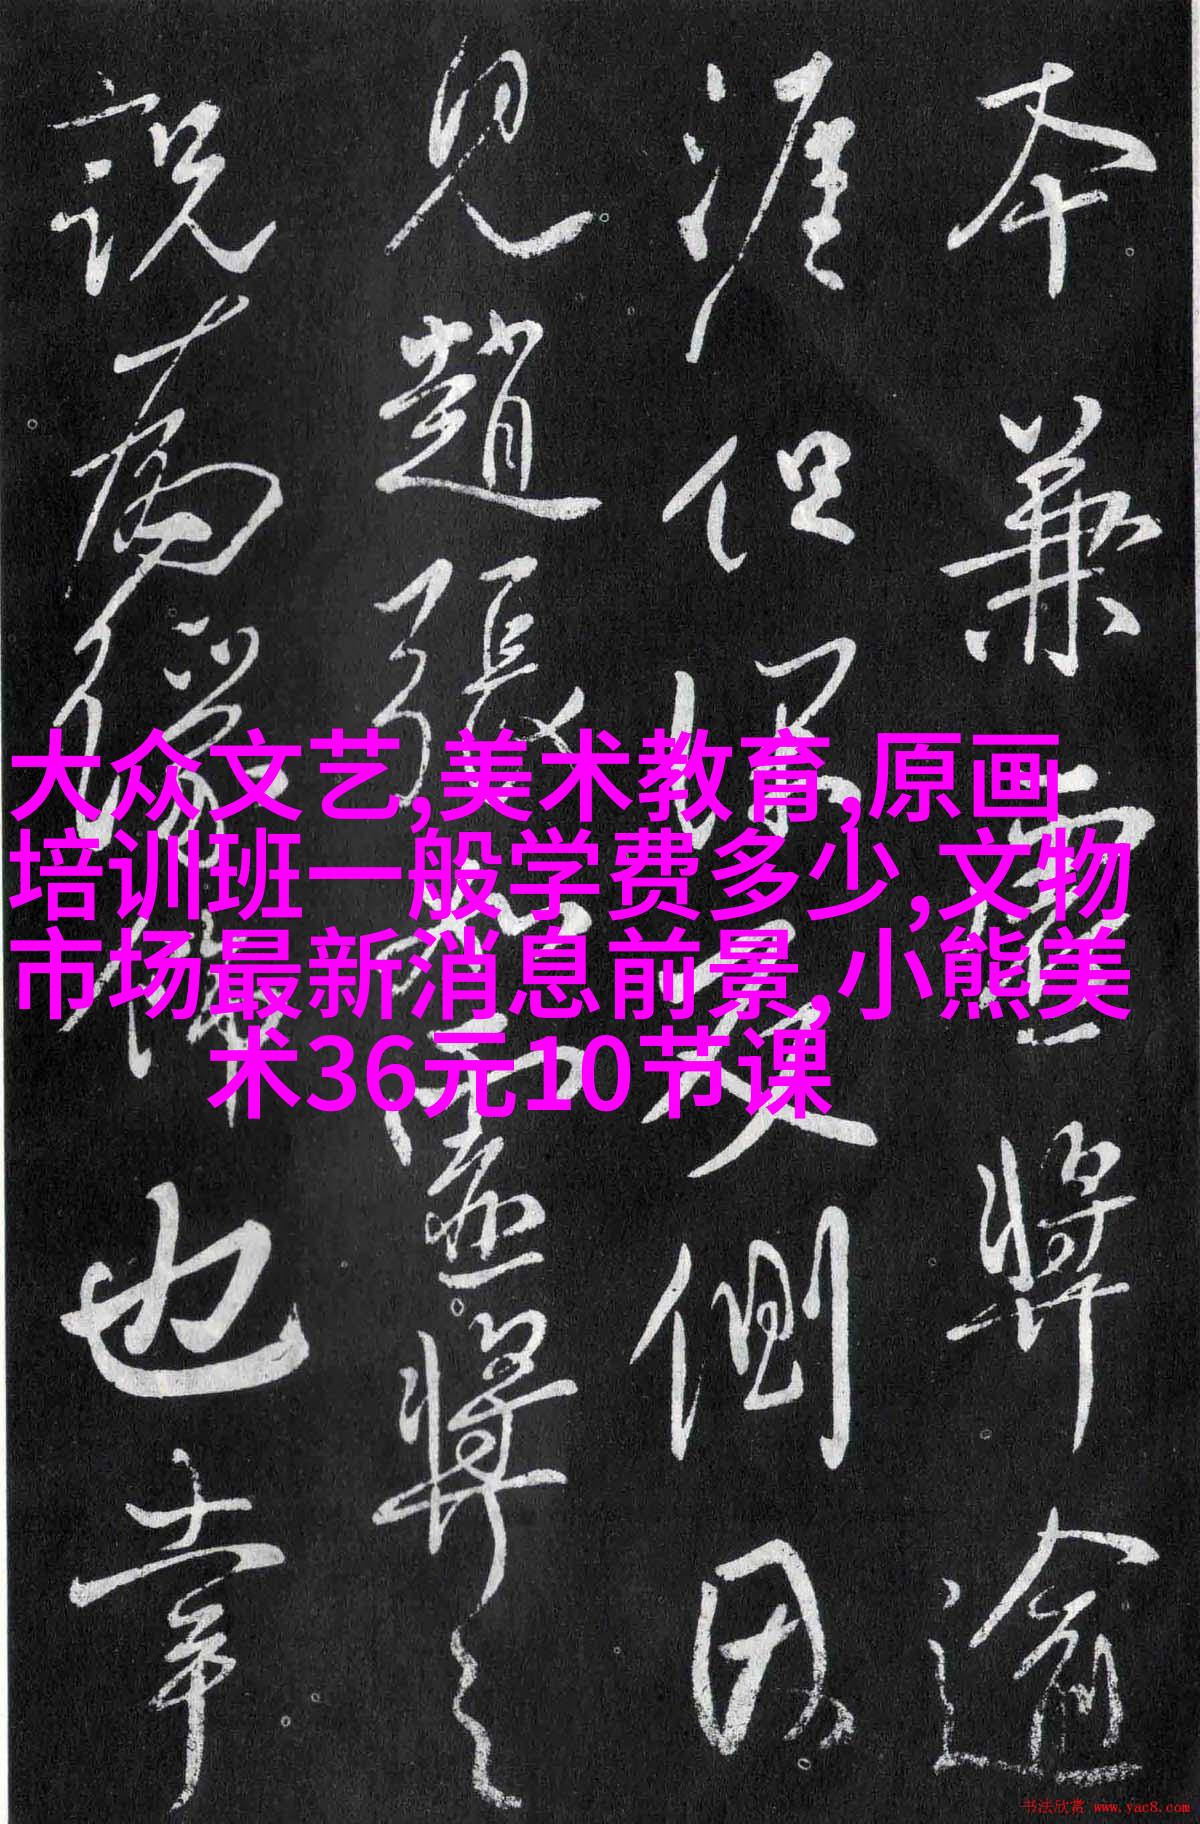 本兼將逾
涯但側因
見趙張將之
説為也章
大众文艺,美术教育,原画
培训班一般学费多少,文物
市场最新消息前景,小熊美
术36元10节课
书法欣赏 www.yac8.com